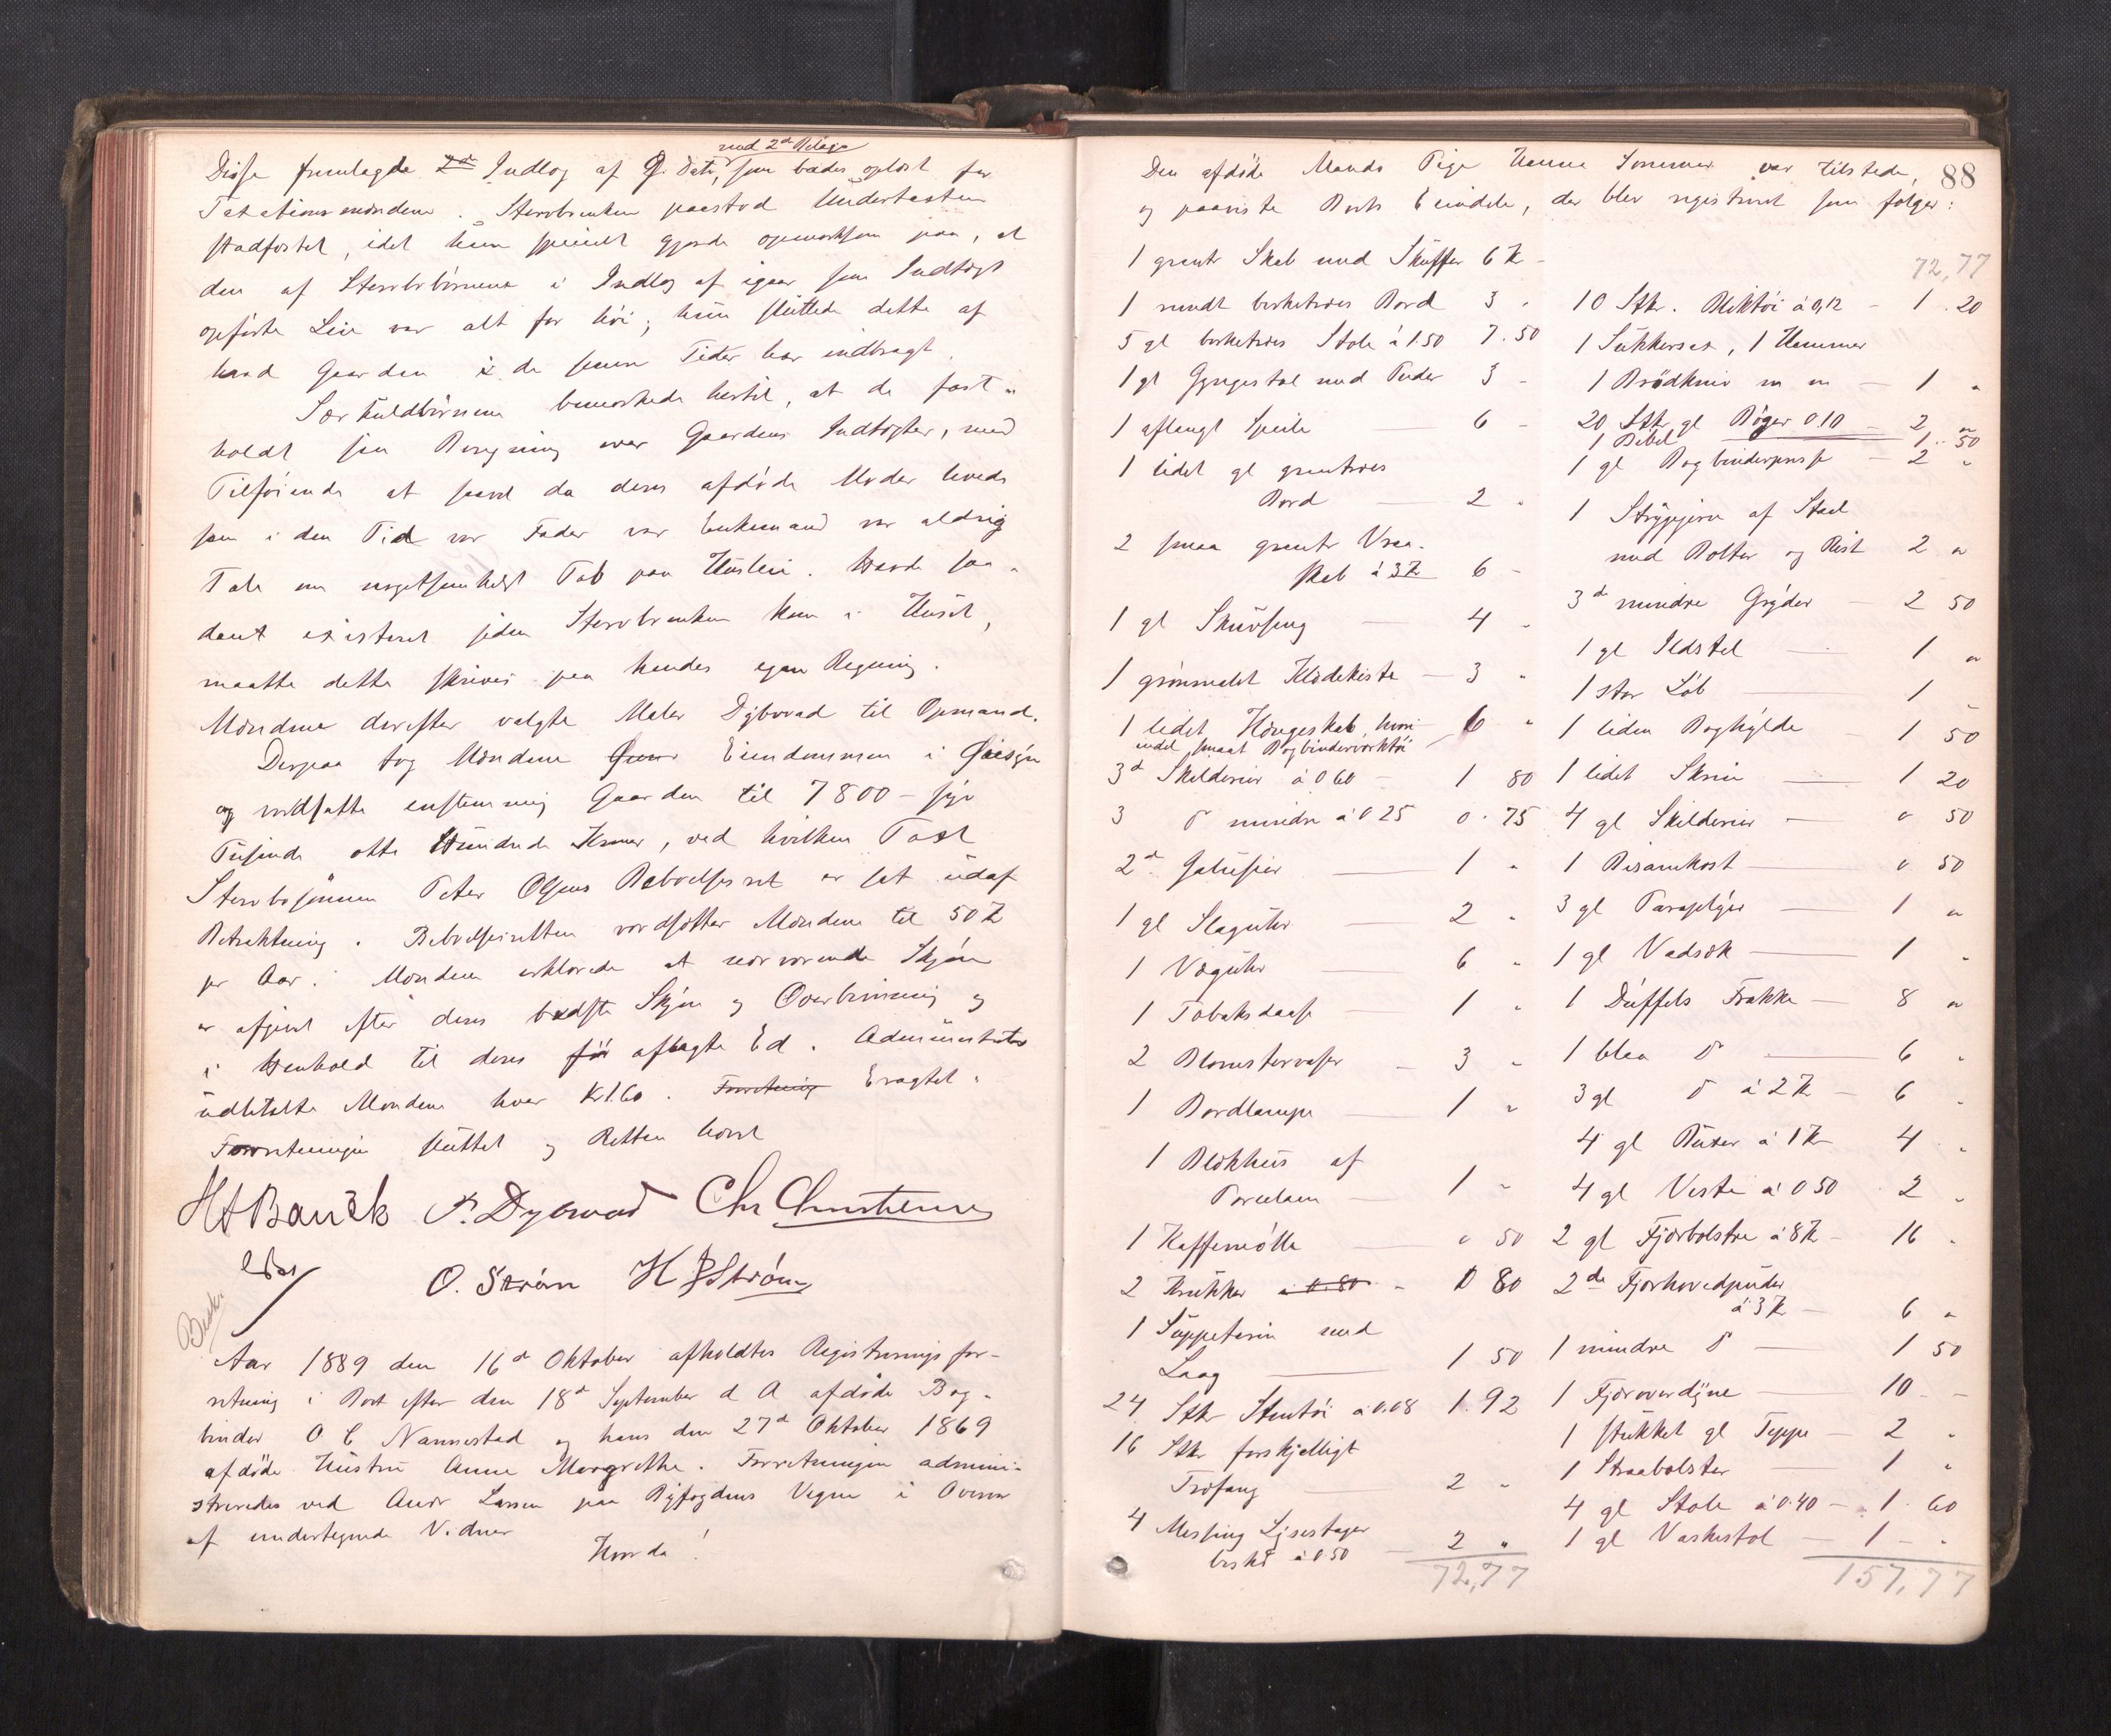 med 2de Bilage
Disse fremlagde 2de Indlæg af D. Dato, som bades oplæst for
Taxationsmændene. Stervboenken paastod Undertaxten
stadfæstet, idet hun specielt gjorde opmærksom paa, at
den af Stervbobørnene i Indlæg af igaar som Indtægt
opførte Leie var alt for høi; hun sluttede dette af
hvad Gaarden i de senere Tider har indbragt.
Særkuldbørnene bemærkede hertil, at de fast-
holdt sin Beregning over Gaardens Indtægter, med
Tilføiende at saavel da deres afdøde Moder levede
som i den Tid vor Fader var Enkemand var aldrig
Tale om nogetsomhelst Tab paa Husleie. Havde saa-
dant existeret siden Stervboenken kom i Huset,
maatte dette skrives paa hendes egen Regning.
Mændene derefter valgte Maler Dybvad til Opmand.
Derpaa tog Mændene Eiendommen i Øiesyn
og værdsatte enstemmig Gaarden til 7800 - syv
Tusinde otte Hundrede Kroner, ved hvilken Taxt
Stervbosønnen Peter Olsens Beboelsesret er sat udaf
Betraktning. Beboelsesretten værdsætter Mændene til 50 Kr
pr Aar. Mændene erklærede at nærværende Skjøn
er afgivet efter deres bedste Skjøn og Overbevisning og
i Henhold til deres før aflagte Ed. Administrator
udbetalte Mændene hver Kr 1.60. Forretning Eragtet.
Forretningen sluttet og Retten hævet
HA Bauck P. Dybwad Chr Christensen
O. Strøm H P Strøm
Aar 1889 den 16de Oktober afholdtes Registreringsfor-
retning i Boet efter den 18de September d A afdøde Bog-
binder O C Nannestad og hans den 27de Oktober 1869
afdøde Hustru Anne Margrethe. Forretningen admini-
streredes ved Andr Larsen paa Byfogdens Vegne i Overvær
af undertegnede Vidner
Hvorda!
88
Den afdøde Mands Pige Hanne Sommer var tilstede,
og paaviste Boets Eiendele, der blev registreret som følger:
1 grantr Skab med Skuffer 6 Kr -
1 rundt birketræes Bord 3 "
5 gl birketræes Stole á 1.50 7.50
1 gl Gyngestol med Puder 3 -
1 aflangt Speile 6 -
1 lidet gl grantræes
Bord — 2 "
2 smaa grantr Vraa-
skab á 3 Kr 6 -
1 gl Skruvseng — 4 "
1 grønmalet Klædekiste — 3 "
1 lidet Hængeskab, hvori 6 "
endel smaat Bogbinderværktøi
3de Skilderier á 0 60 - 1 80
3 do mindre á 0 25 0.75
2de — 1 "
1 gl Slaguhr — 2 "
1 Væguhr — 6 "
1 Tobaksdaase — 1 "
2 Blomstervaser — 3 "
1 Bordlampe — 1 "
1 Blækhus af
Porcelæn — 1 "
1 Kaffemølle — " 50
2 Krukker á 0.80 - 0 80
1 Suppeterin med
Laag — 1 50
24 Stkr Stentøi á 0.08 1.92
16 Stkr forskjelligt
Træfang — 2 "
4 Messing Lysestager
beskt á 0 50 — 2 "
72,77
72,77
10 Stkr. Bliktøi á 0,12 - 1.20
1 Sukkersax, 1 Hammer
1 Brødkniv m m — 1 "
20 Stkr gl Bøger 0 10 — 2 "
1 Bibel — 1.50
1 gl Bogbinderpresse — 2 "
1 Strygejern af Staal
med Bolter og Rist 2 "
3de mindre Gryder — 2 50
1 gl Ildstel — 1 "
1 stor Løb — 1 -
1 liden Boghylde — 1 50
1 lidet Skrin — 1 20
4 gl Skilderier — " 50
1 Pisamkost — " 50
3 gl Paraplyer — 1 "
1 gl Vadsæk — 1 "
1 Duffels Frakke — 8 "
1 blaa do — 6 "
3 gl do á 2 Kr — 6 "
4 gl Buxer á 1 Kr 4 "
4 gl Veste á 0 50 2 "
2 gl Fjærbolstre á 8 Kr — 16 "
2de Fjærhovedpuder
á 3 Kr — 6 "
1 mindre do — 1 50
1 Fjæroverdyne — 10 -
1 stukket gl Teppe — 2 "
1 Straabolster — 1 "
4 gl Stole á 0.40 — 1.60
1 gl Vaskestol — 1 - "
157,77